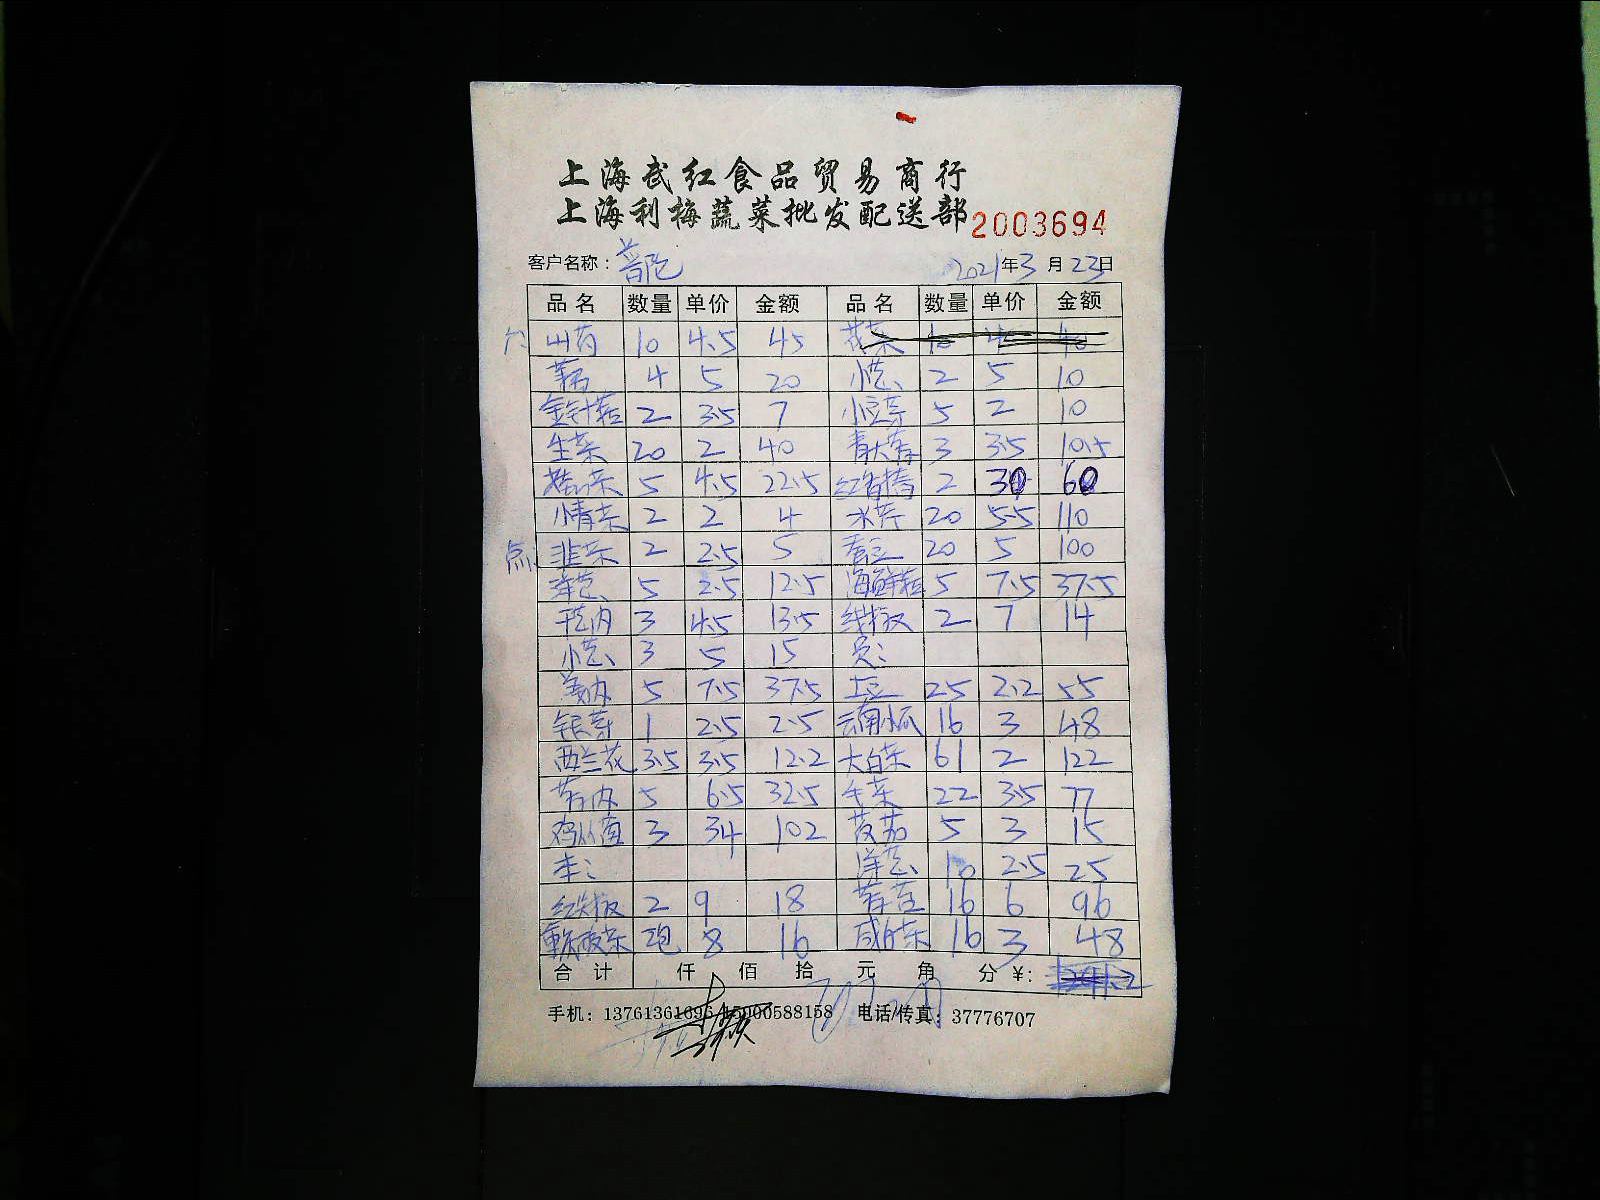 上海武红食品贸易商行
上海利梅蔬菜批发配送部 2003694
客户名称：普陀 2021年3月23日
品名 数量 单价 金额 品名 数量 单价 金额
山药 10 4.5 45 花菜 10 4 40
4 5 20 小芯 2 5 10
金针菇 2 3.5 7 小豆芽 5 2 10
生菜 20 2 40 青大蒜 3 3.5 10.5
5 4.5 22.5 2 30 60
小青菜 2 2 4 水芹 20 5.5 110
点: 韭菜 2 2.5 5 20 5 100
洋芯 5 2.5 12.5 海鲜菇 5 7.5 37.5
3 4.5 13.5 线椒 2 7 14
小芯 3 5 15
5 7.5 37.5 土豆 25 2.2 55
银芽 1 2.5 2.5 云南小瓜 16 3 48
西兰花 3.5 3.5 12.2 大白菜 61 2 122
5 6.5 32.5 毛菜 22 3.5 77
鸡从菌 3 34 102 5 3 15
李: 洋芯 10 2.5 25
红尖椒 2 9 18 16 6 96
2包 8 16 16 3 48
合计 仟 佰 拾 元 角 分 ¥:
手机：13761361696 15000588158 电话/传真：37776707